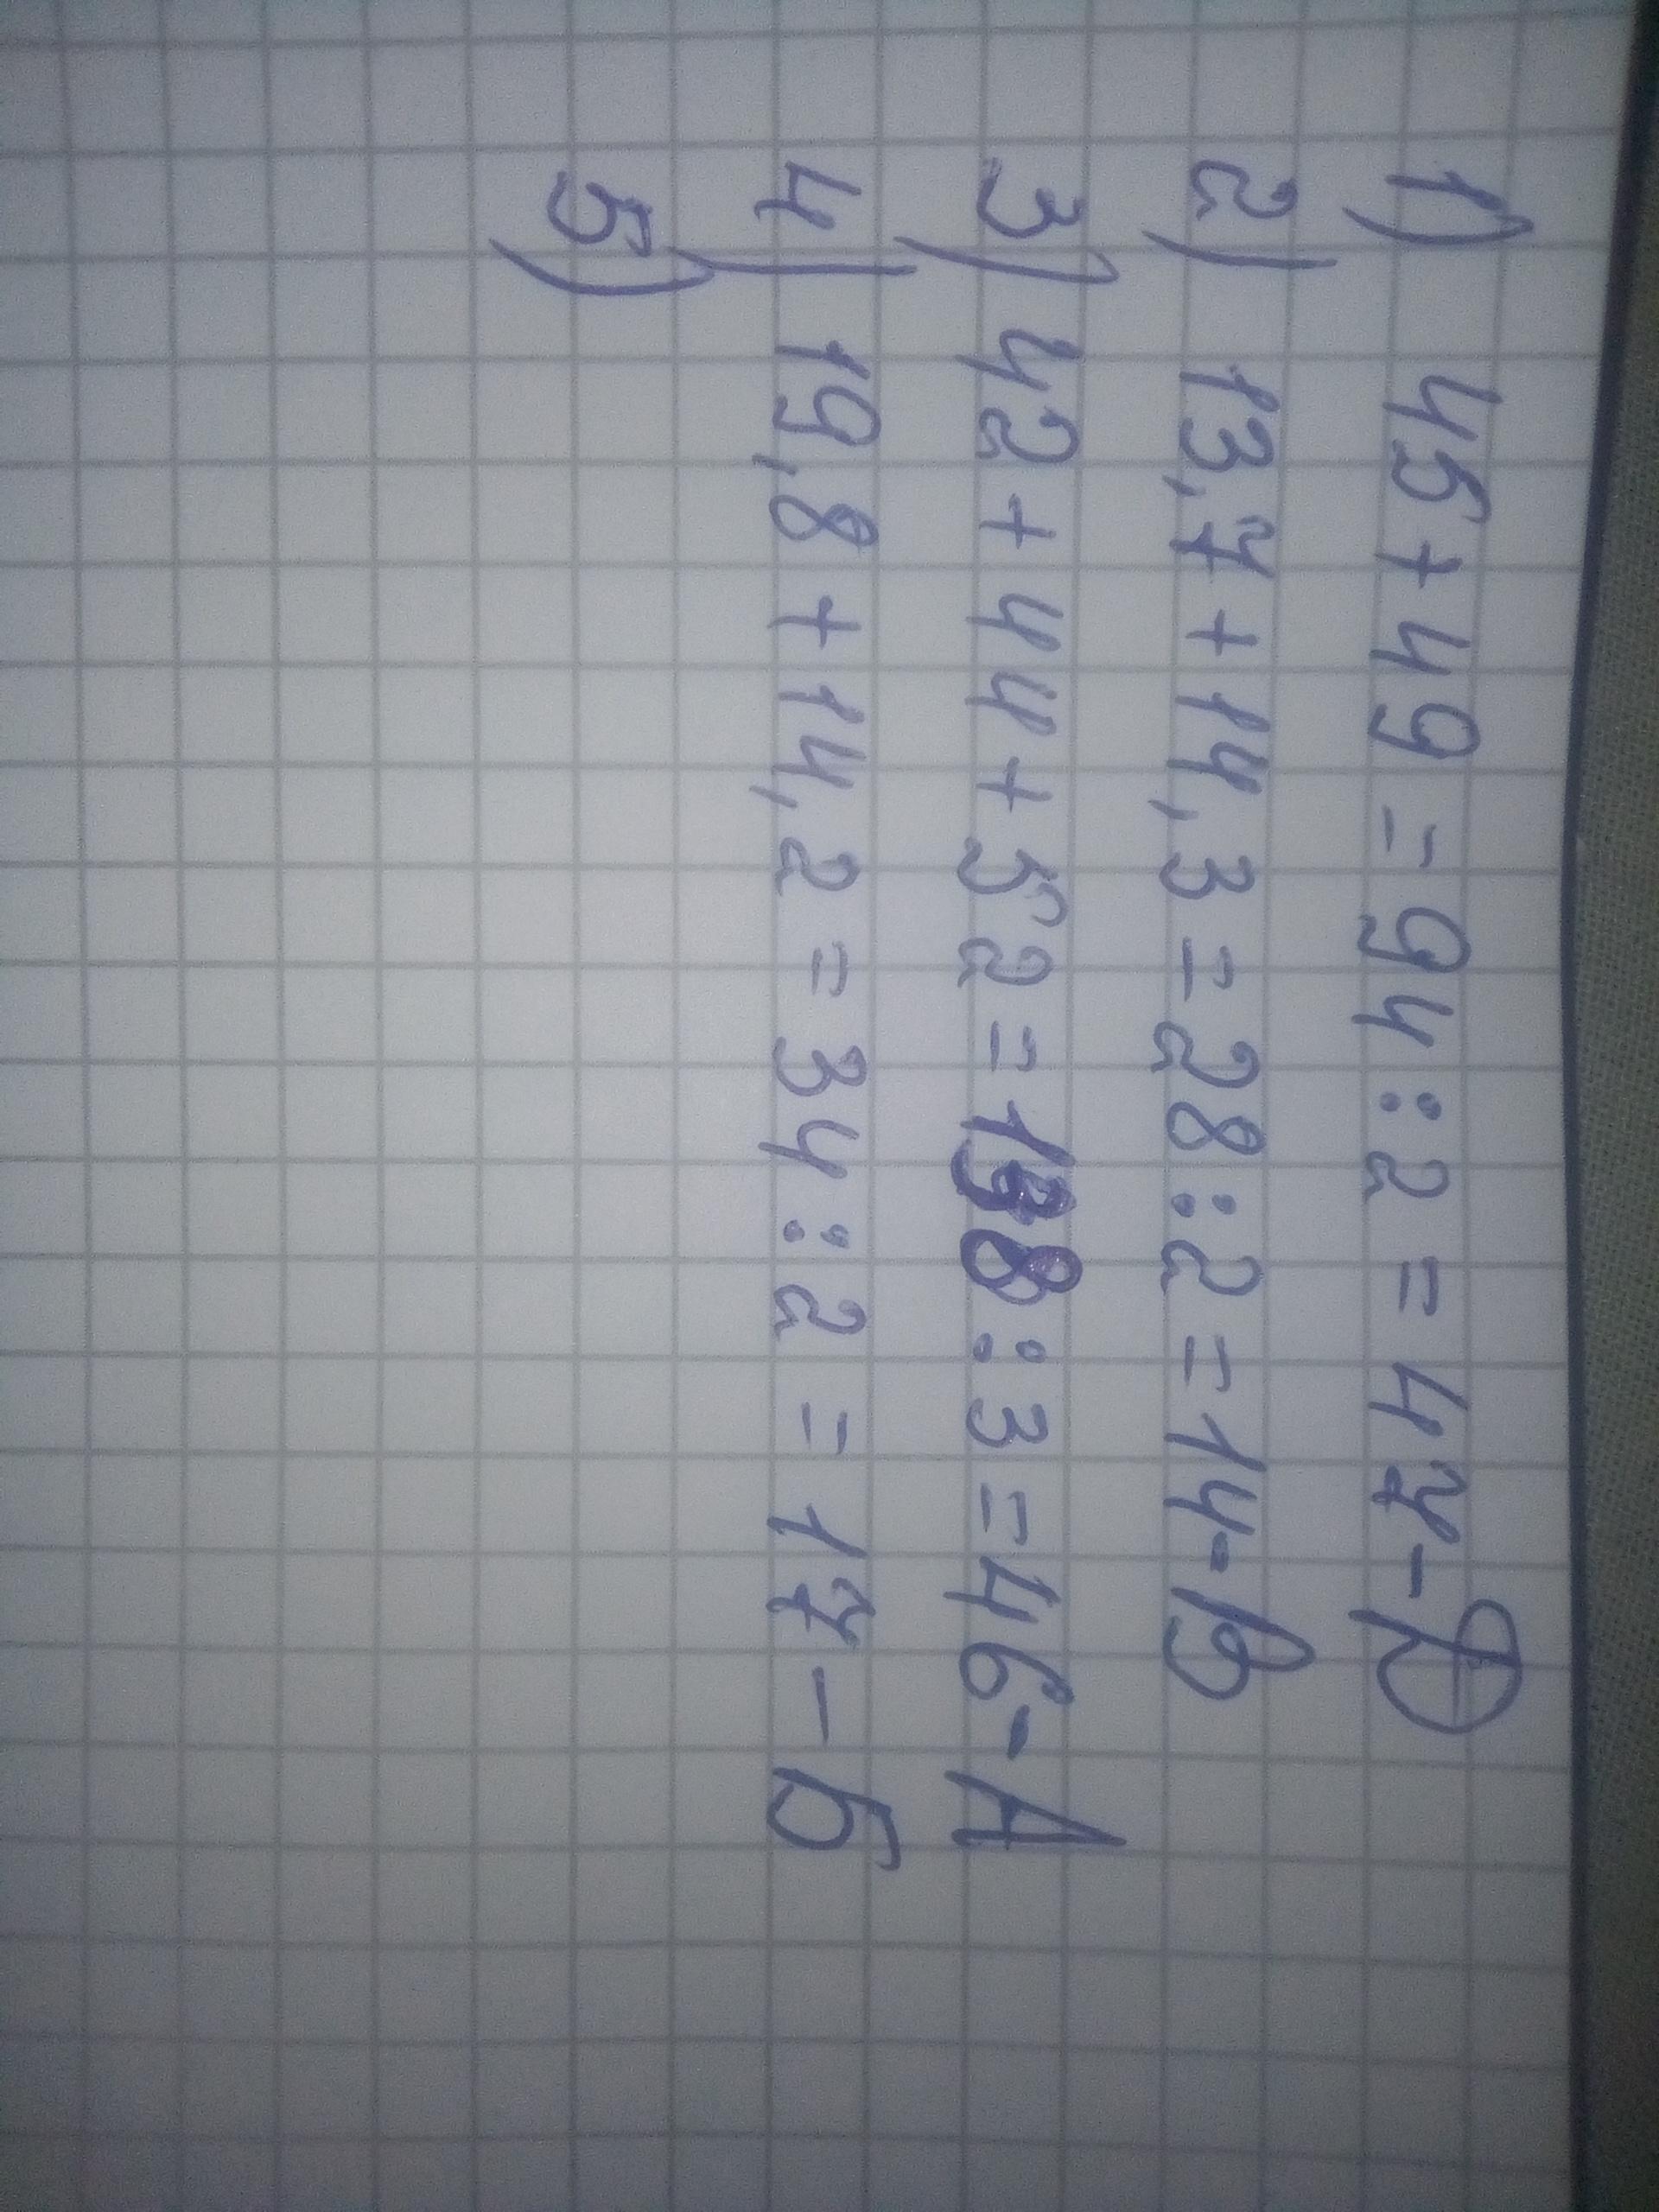 1) 45+49=94:2=47-А
2) 13,7+14,3=28:2=14-В
3) 42+44+52=138:3=46-А
4) 19,8+14,2=34:2=17-Б
5)